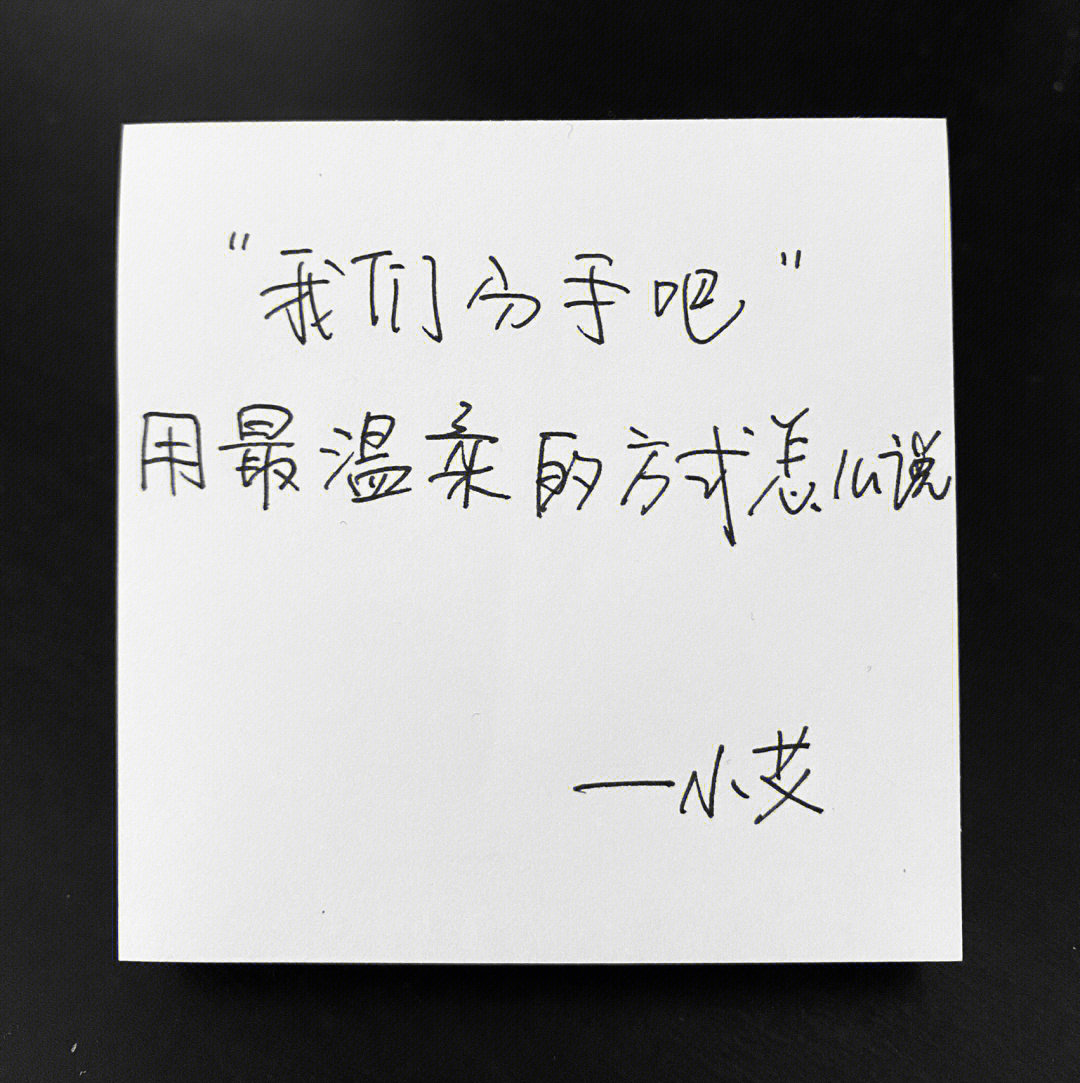 "我们分手吧"
用最温柔的方式怎么说
—小艾